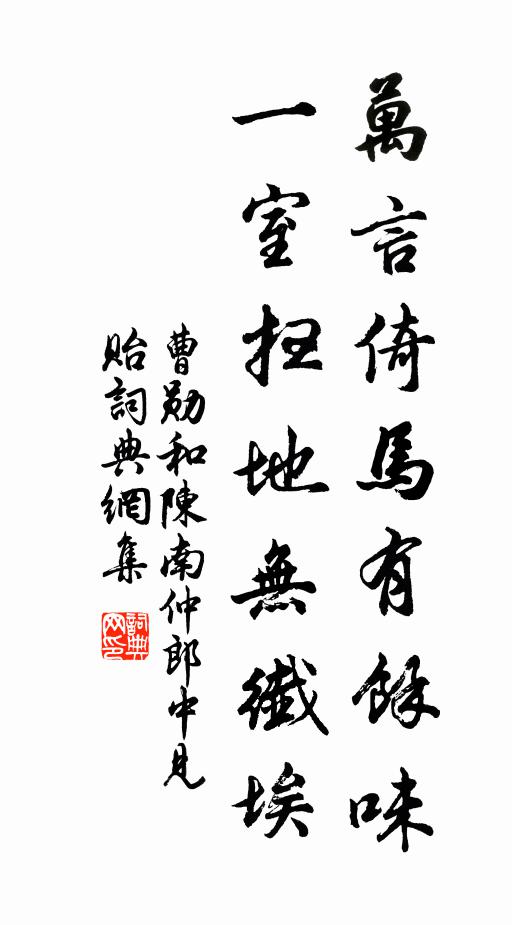 萬言倚馬有餘味
一室扫地無纖埃
曹勛和陳南仲郎中見
貽詞典網集
詞典网印